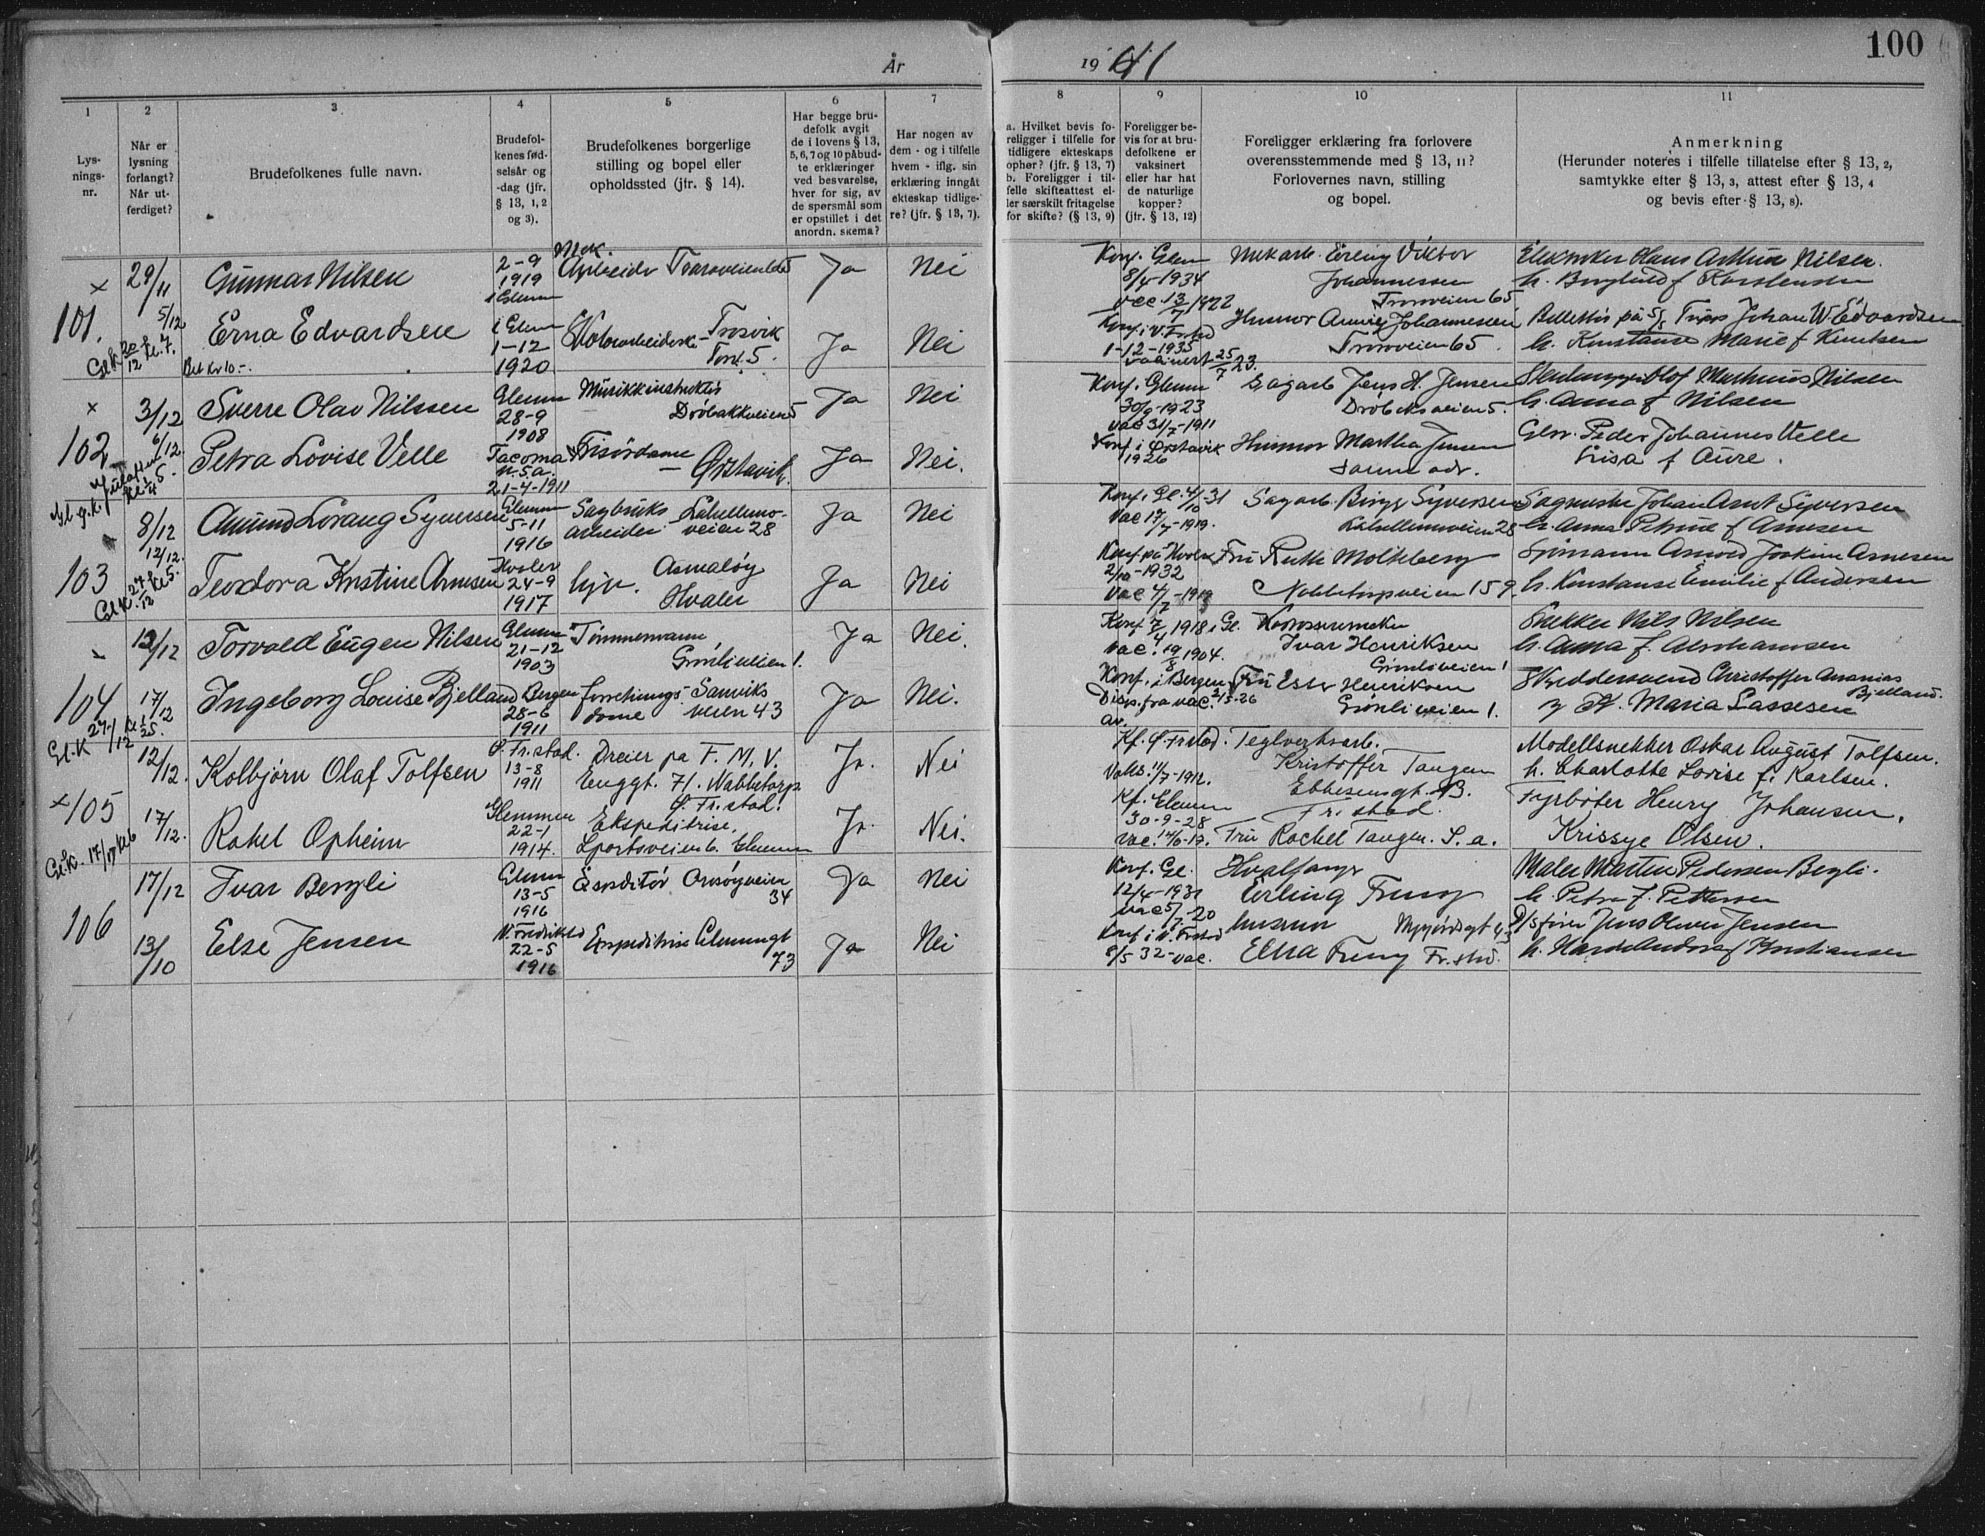 År
19 41
100
1
2
3
4
5
6
7
8
9
10
11
Lys-
nings-
nr.
Når er
lysning
forlangt?
Når ut-
ferdiget?
Brudefolkenes fulle navn.
Brudefol-
kenes fød-
selsår og
-dag (jfr.
§ 13, 1, 2
og 3).
Brudefolkenes borgerlige
stilling og bopel eller
opholdssted (jfr. § 14).
Har begge bru-
defolk avgit
de i lovens § 13,
5, 6, 7 og 10 påbud-
te erklæringer
ved besvarelse,
hver for sig, av
de spørsmål som
er opstillet i det
anordn. skema?
Har nogen av
dem - og i tilfelle
hvem - iflg. sin
erklæring inngått
ekteskap tidlige-
re? (jfr. § 13, 7).
a. Hvilket bevis fo-
religger i tilfelle for
tidligere ekteskaps
ophør? (jfr. § 13, 7)
b. Foreligger i til-
felle skifteattest el-
ler særskilt fritagelse
for skifte? (§ 13, 9)
Foreligger be-
vis for at bru-
defolkene er
vaksinert
eller har hat
de naturlige
kopper?
(jfr. § 13, 12)
Foreligger erklæring fra forlovere
overensstemmende med § 13, 11?
Forlovernes navn, stilling
og bopel.
Anmerkning
(Herunder noteres i tilfelle tillatelse efter § 13, 2,
samtykke efter § 13, 3, attest efter § 13, 4
og bevis efter § 13, 8).
x
29/11
Gunnar Nilsen
2-9
1919
i Glemm
Mek.
Arbeider
Ja
Nei
Konf. i Glem
8/4-1934
vac 13/7 1922
Mek arb. Erling Viktor
Johannessen
Torsveien 65
Hans Arthur Nilsen.
h. Borghild f Karstensen
101.
5/12
Erna Edvardsen
i Glem
1-12
1920
Torsvik
Tors. 5.
Ja
Nei
Konf. i V. Frstad
1-12-1935
25/7 23.
Husmor Annie Johannessen
Torsveien 65.
Johan W. Edvardsen
h. Konstanse Marie f Knutsen
Gl.K 20/12 kl. 7.
Bet Kr 10-.
x
3/12
Sverre Olav Nilssen
Glemm
28-9
1908
Musikkinstruktør
Drøbakkveien 5
Ja
Nei
Konf. Glemm
30/9-1923
vac 31/7-1911
Sagarb Jens H. Jensen
Drøbakveien 5.
Olof Mathæus Nilsen
h. Anna f Nilsen
102
6/12.
Petra Lovise Velle
Tacoma
U.S.A.
21-4-1911
Frisørdame
— Ørstavik
Ja
Nei.
Konf i Ørstavik
1926
Husmor Martha Jensen
samme adr.
Peder Johannes Velle
Lrisa f Aure.
8/12
Amund Lorang Syversen
Glemm
5-11
1916
Sagbruks
arbeider
veien 28
Ja
Nei
Konf. i Gl. 4/10 31
Vac 17/7-1919.
Sagarb. Birger Syversen
Johan Arnt Syversen
h. Anna Petrine f Arnesen
103
12/12.
Teodora Kristine Arnesen
Hvaler
24-9
1917
hjv.
Asmaløy
Hvaler
Ja
Nei
Konf på Hvaler
2/10-1932
Vac 4/7-1919
Fru Ruth Moltzberg
Nabbetorpveien 159.
Sjømann Arnold Joakim Arnesen
h. Konstanse Emilie f Andersen
Gl.K. 27/12 kl 5.
12/12
Torvald Eugen Nilsen
Glemm
21-12
1903
Tømmermann
Grønliveien 1.
Ja
Nei.
Konf 7/4 1918 i Gl.
vac. 19/8 1904.
Ivar Henriksen
Grønliveien 1
Snekker Nils Nilsen
h. Anna f. Abrahamsen
104
17/12
Ingeborg Louise Bjelland
Bergen
28-6
1911
Forretnings-
dame
Sanviks
veien 43
Ja
Nei.
Konf. i Bergen
Disp. fra vac. 2/5-26
Fru Ester Henriksen
Grønliveien 1.
Skreddersvend Christoffer Ananias
Bjelland.
Maria Lassesen
Gl.K
12/12.
Kolbjørn Olaf Tolfsen
Ø. Fr.stad.
13-8
1911
Dreier på F. M. V.
Enggt. 71. Nabbetorp
Ø. Fr.stad.
Ja.
Nei
Kf. Ø. Fr.stad.
Vaks. 11/7-1912.
Teglverksarb.
Kristoffer Tangen
Ebbesensgt. 13.
Fr. stad.
Modellsnekker Oskar August Tolfsen.
h. Charlotte Lovise f. Karlsen.
x 105
17/12.
Rakel Opheim
Glemmen
22-1
1914.
Ekspeditrise.
Sportsveien 6. Glemmen
Ja.
Nei.
Kf. Glemm
30-9-28
vac. 14/6-19.
Fru Rachel Tangen. S. a.
Fyrbøter Henry Johansen.
Krissye Olsen.
17/12
Ivar Bergli
Glemm
13-5
1916
Expeditør
34
Ja
Nei
Konf. Gl.
12/4-1931
vac 5/7-20
Hvalfanger
Erling Freng
Maler Martin Pedersen Bergli.
h. Petra f. Pettersen
106
13/10
Else Jensen
V. Fredrikstd
22-5
1916
Expeditrise Glemmengt
73
Ja
Nei
Konf i V. Frstad
8/5 32-vac.
Elna Freng Fr.std.
Jens Oliver Jensen
f Kristiansen